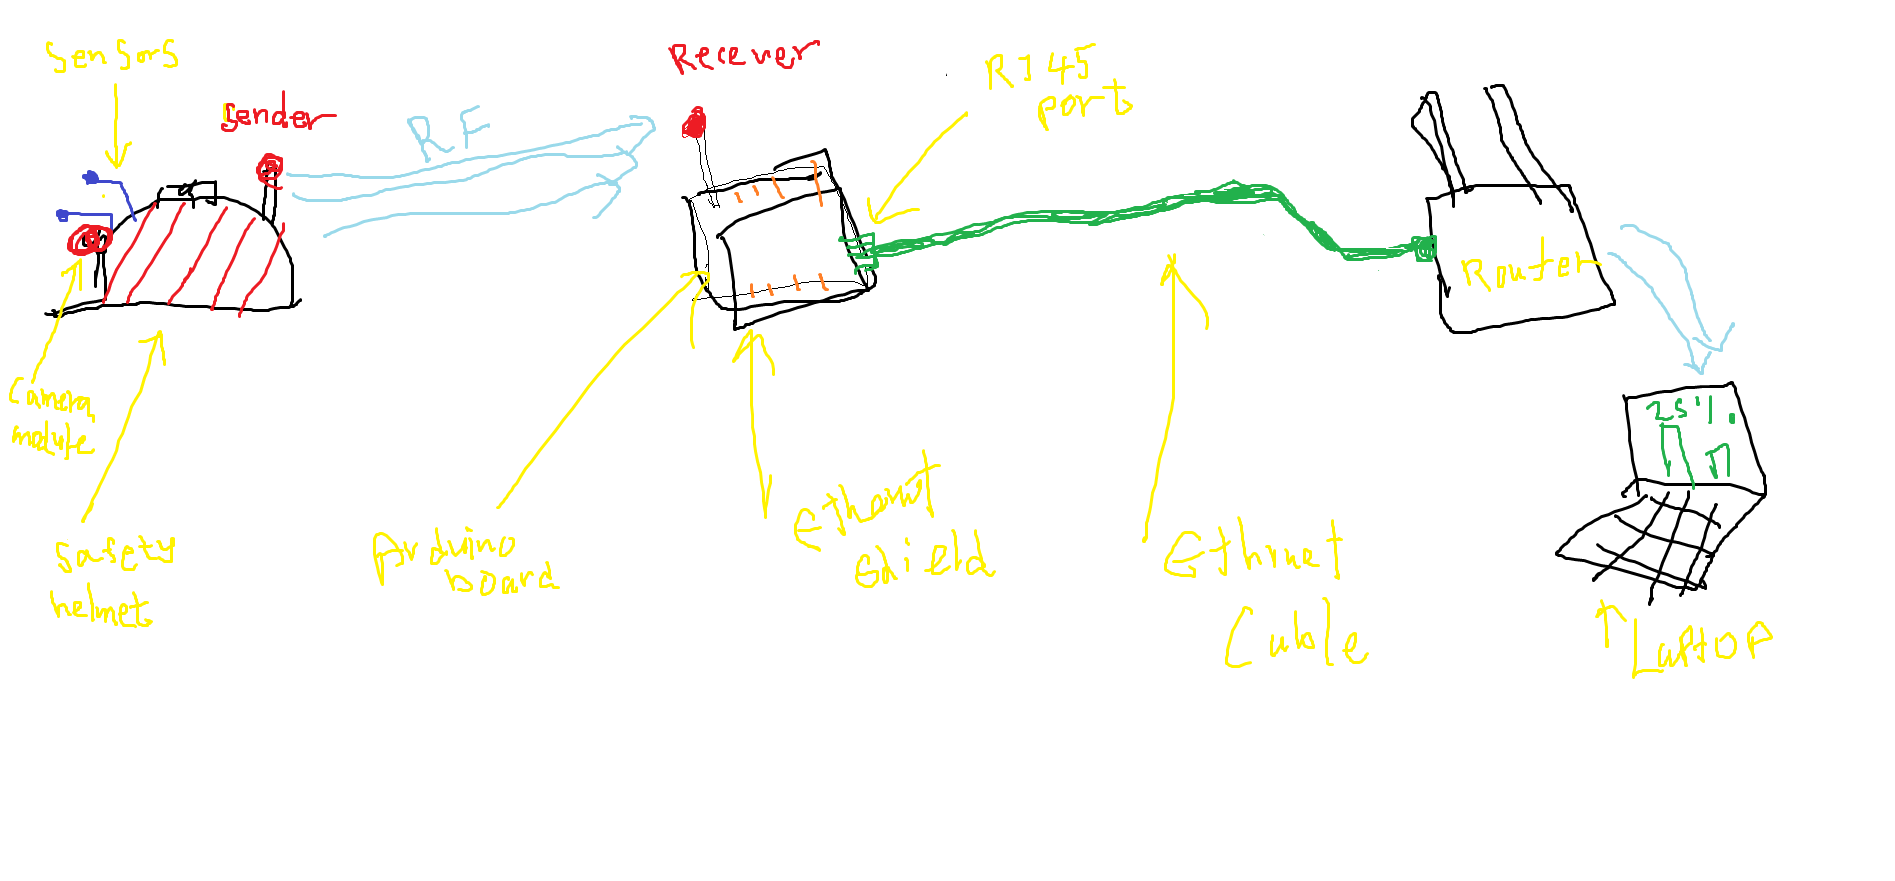 Sensors
Sender
RF
Recever
RJ45
port
Router
Camera
module
25%
Safety
helmet
Arduino
board
Shield
Ethinet
Cuble
Laptop